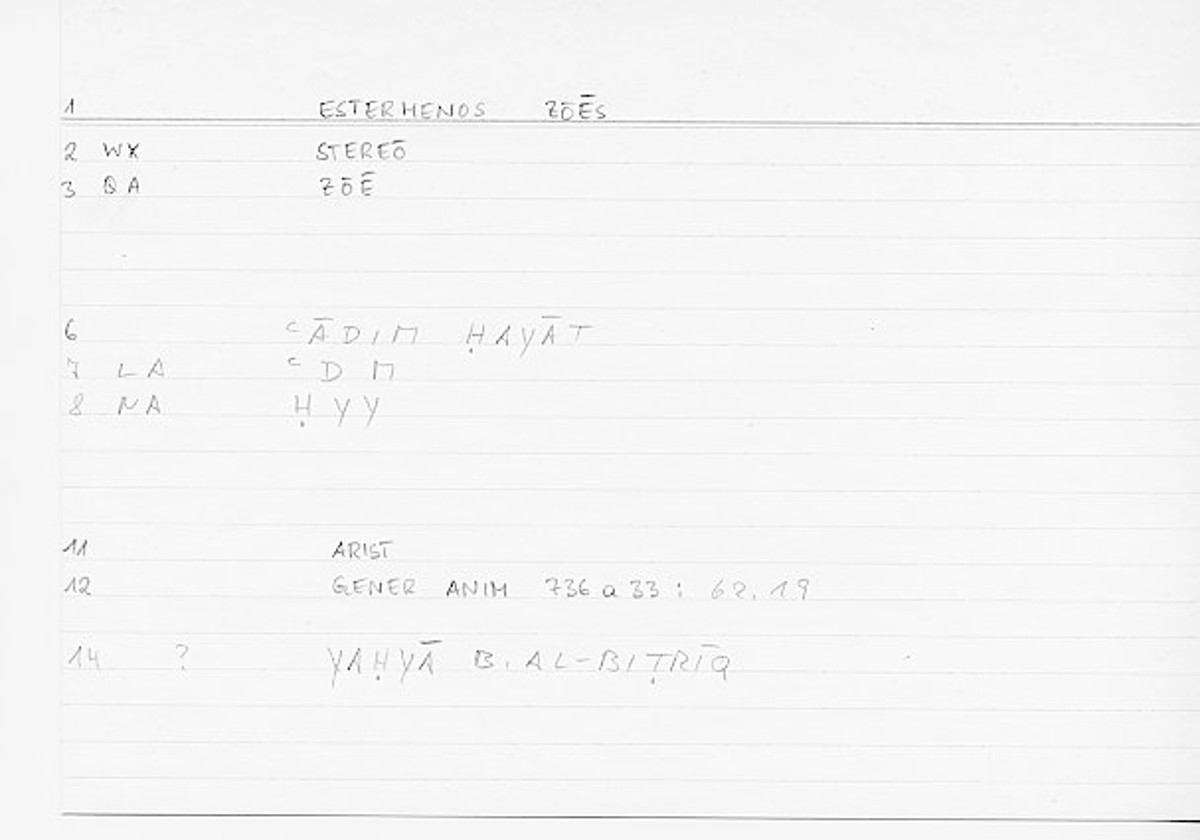 1 ESTERMENOS ZŌĒS
2 WX STEREŌ
3 QA ZŌĒ
6 ʿĀDIM ḤAYĀT
7 LA ʿDM
8 NA ḤYY
11 ARIST
12 GENER ANIM 736 a 33 : 62.19
14 ? YAḤYĀ B. AL-BIṬRĪQ